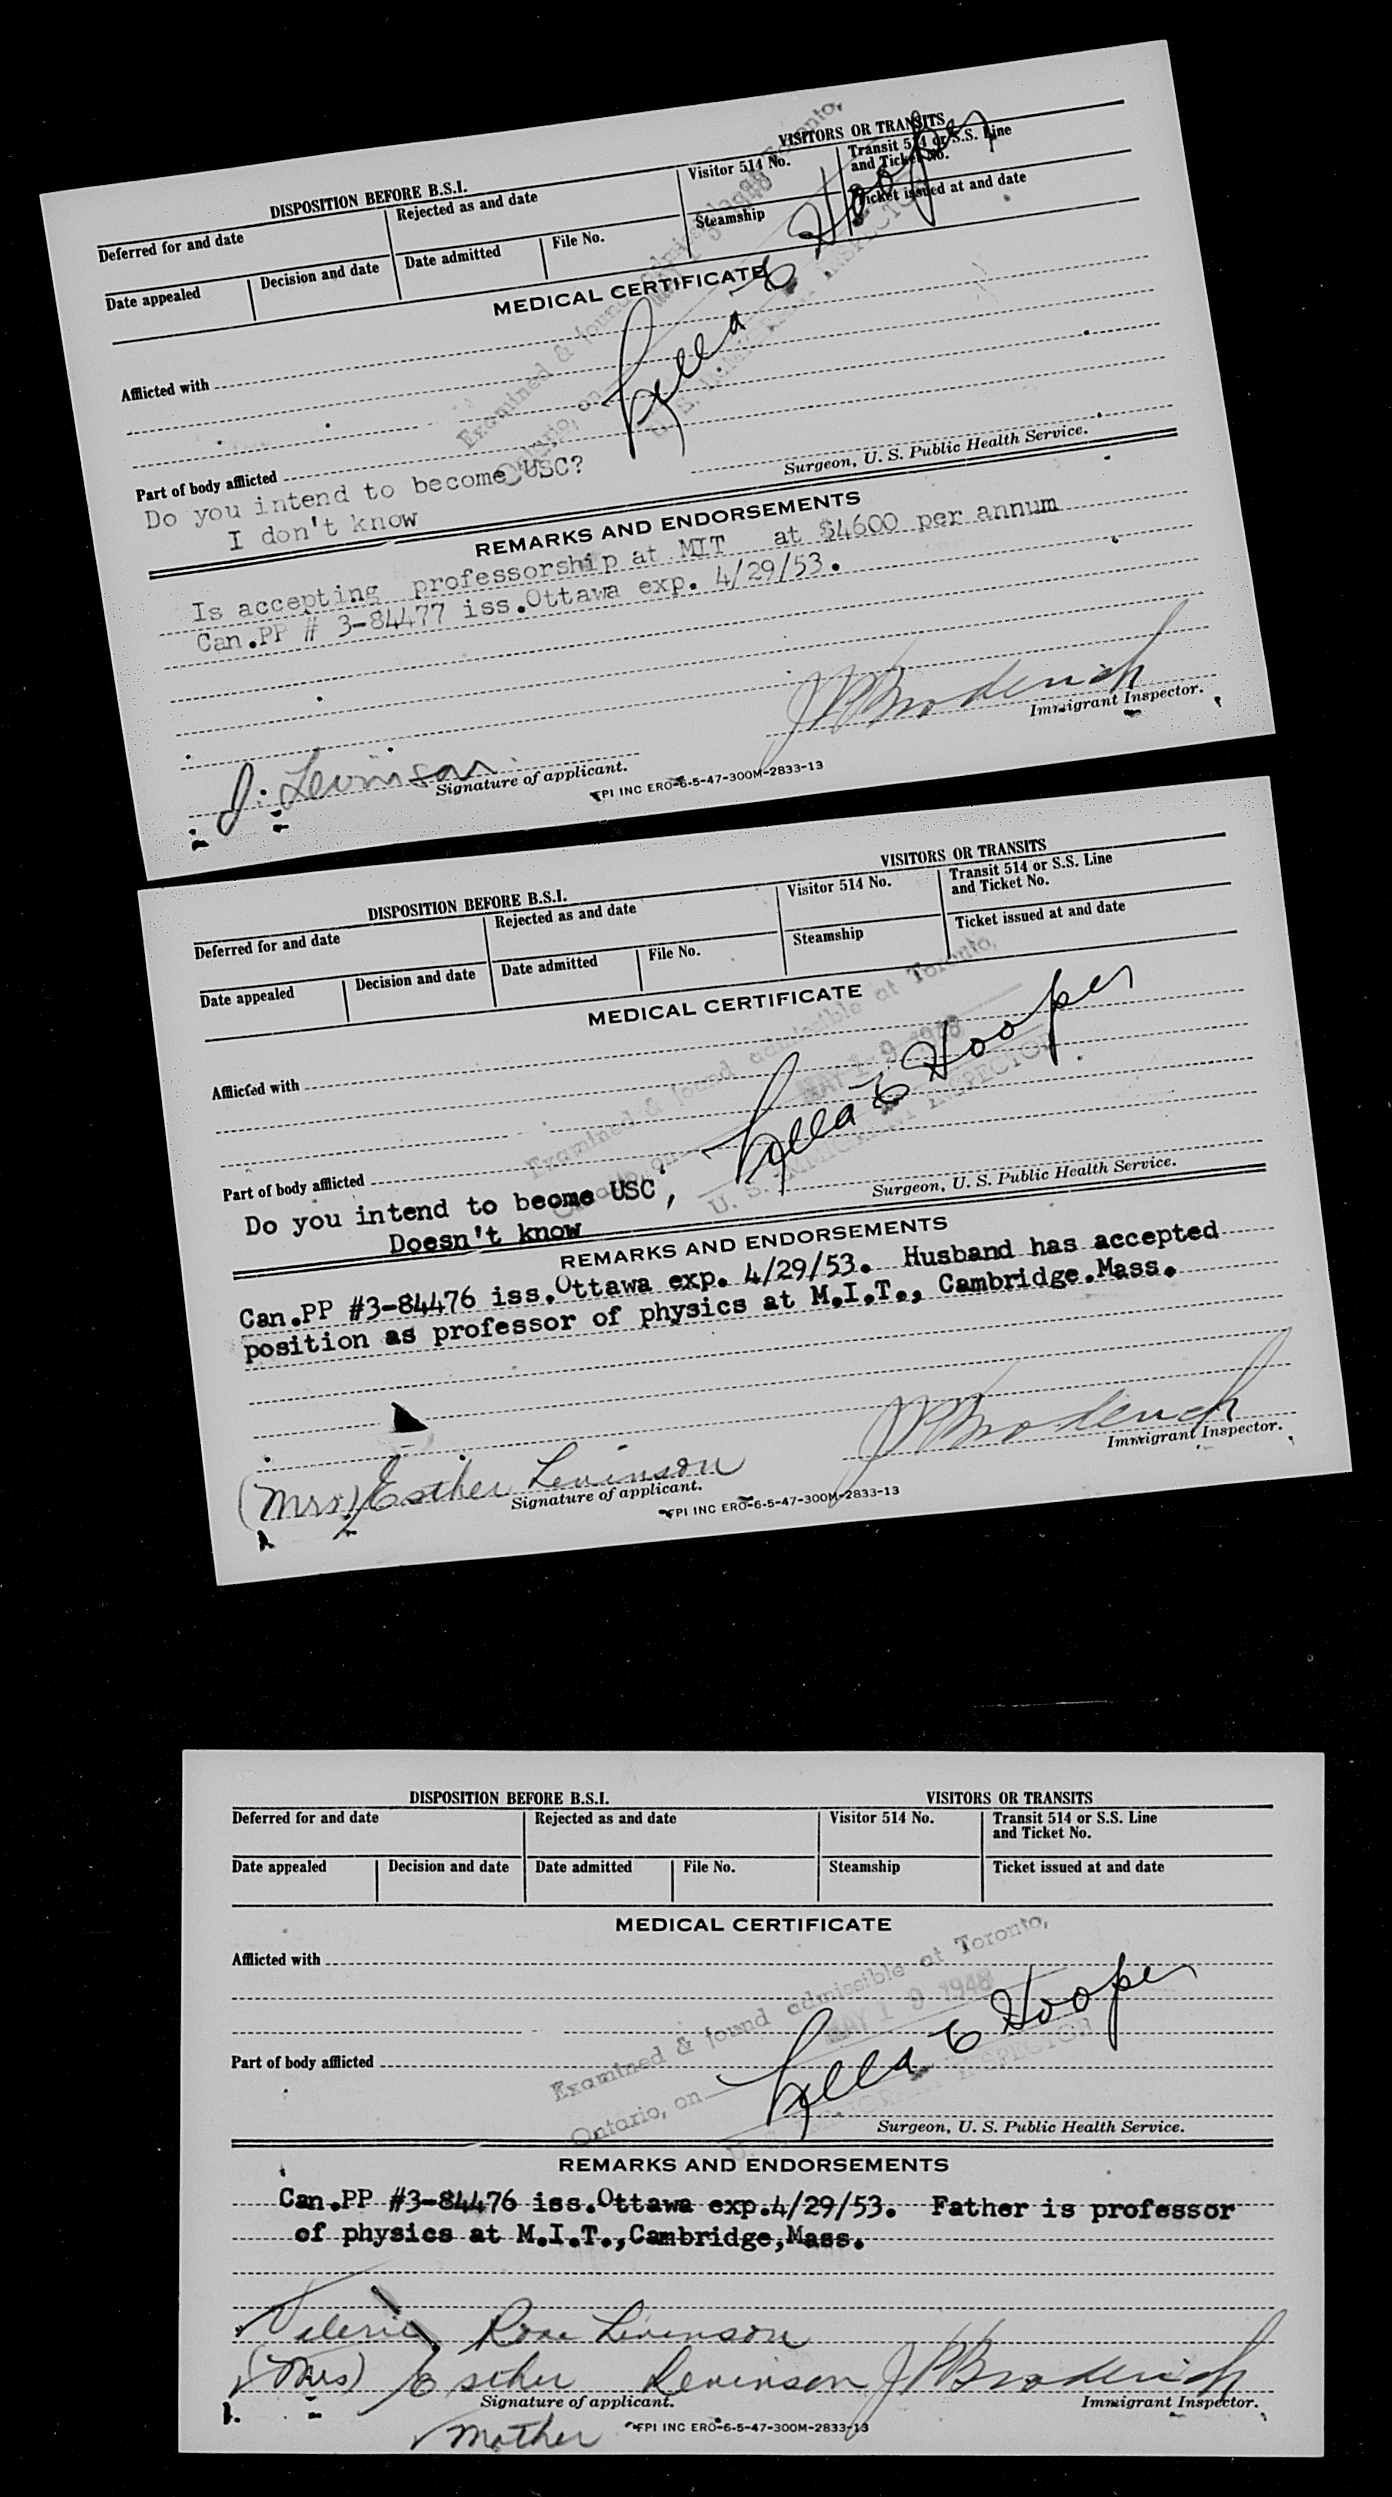 DISPOSITION BEFORE B.S.I.
VISITORS OR TRANSITS
Deferred for and date
Rejected as and date
Visitor 514 No.
Transit 514 or S.S. Line
and Ticket No.
Date appealed
Decision and date
Date admitted
File No.
Steamship
Ticket issued at and date
MEDICAL CERTIFICATE
Afflicted with
Examined & found admissible at Toronto,
Ontario, on
1948
Lella E Hooper
U. S. IMMIGRANT INSPECTOR
Part of body afflicted
Surgeon, U. S. Public Health Service.
Do you intend to become USC?
I don't know
REMARKS AND ENDORSEMENTS
Is accepting professorship at MIT at $4600 per annum
Can.PP # 3-84477 iss.Ottawa exp. 4/29/53.
J P Broderick
Immigrant Inspector.
J. Levinson
Signature of applicant.
FPI INC ERO-6-5-47-300M-2833-13
DISPOSITION BEFORE B.S.I.
VISITORS OR TRANSITS
Deferred for and date
Rejected as and date
Visitor 514 No.
Transit 514 or S.S. Line
and Ticket No.
Date appealed
Decision and date
Date admitted
File No.
Steamship
Ticket issued at and date
MEDICAL CERTIFICATE
Afflicted with
Examined & found admissible at Toronto,
Ontario, on
MAY 19 1948
Lella E Hooper
U. S. IMMIGRANT INSPECTOR
Part of body afflicted
Surgeon, U. S. Public Health Service.
Do you intend to beome USC,
Doesn't know
REMARKS AND ENDORSEMENTS
Can.PP #3-84476 iss.Ottawa exp. 4/29/53. Husband has accepted
position as professor of physics at M.I.T., Cambridge.Mass.
J P Broderick
Immigrant Inspector.
(Mrs) Esther Levinson
Signature of applicant.
FPI INC ERO-6-5-47-300M-2833-13
DISPOSITION BEFORE B.S.I.
VISITORS OR TRANSITS
Deferred for and date
Rejected as and date
Visitor 514 No.
Transit 514 or S.S. Line
and Ticket No.
Date appealed
Decision and date
Date admitted
File No.
Steamship
Ticket issued at and date
MEDICAL CERTIFICATE
Afflicted with
Examined & found admissible at Toronto,
Ontario, on
MAY 19 1948
Lella E Hooper
U. S. IMMIGRANT INSPECTOR
Part of body afflicted
Surgeon, U. S. Public Health Service.
REMARKS AND ENDORSEMENTS
Can.PP #3-84476 iss.Ottawa exp.4/29/53. Father is professor
of physics at M.I.T.,Cambridge,Mass.
Valerie Rose Levinson
(Mrs) Esther Levinson
J P Broderick
Signature of applicant.
Immigrant Inspector.
Mother
FPI INC ERO-6-5-47-300M-2833-13